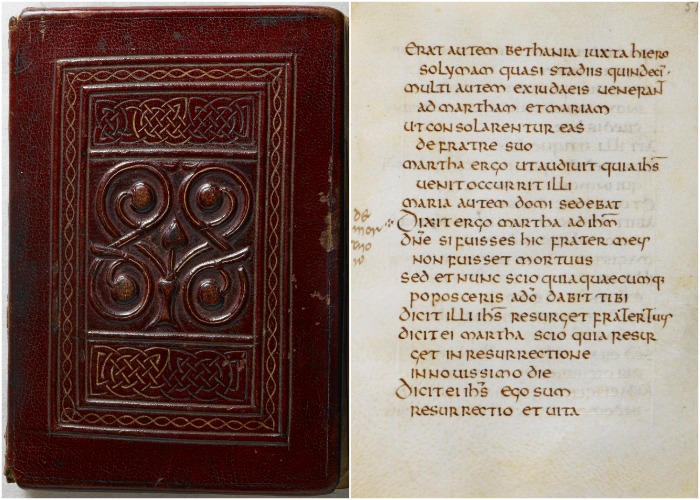 51
erat autem bethania iuxta hiero
solymam quasi stadiis quindeci
multi autem ex iudaeis uenerant
ad martham et mariam
ut consolarentur eas
de fratre suo
martha ergo ut audiuit quia ihs̄
uenit occurrit illi
maria autem domi sedebat
dixit ergo martha ad ihm̄
dn̄e si fuisses hic frater meus
non fuisset mortuus
sed et nunc scio quia quaecumq
poposceris a dō dabit tibi
dicit illi ihs̄ resurget frater tuus
dicit ei martha scio quia resur
get in resurrectione
in nouissimo die
dicit ei ihs̄ ego sum
resurrectio et uita
de
mor
tuo